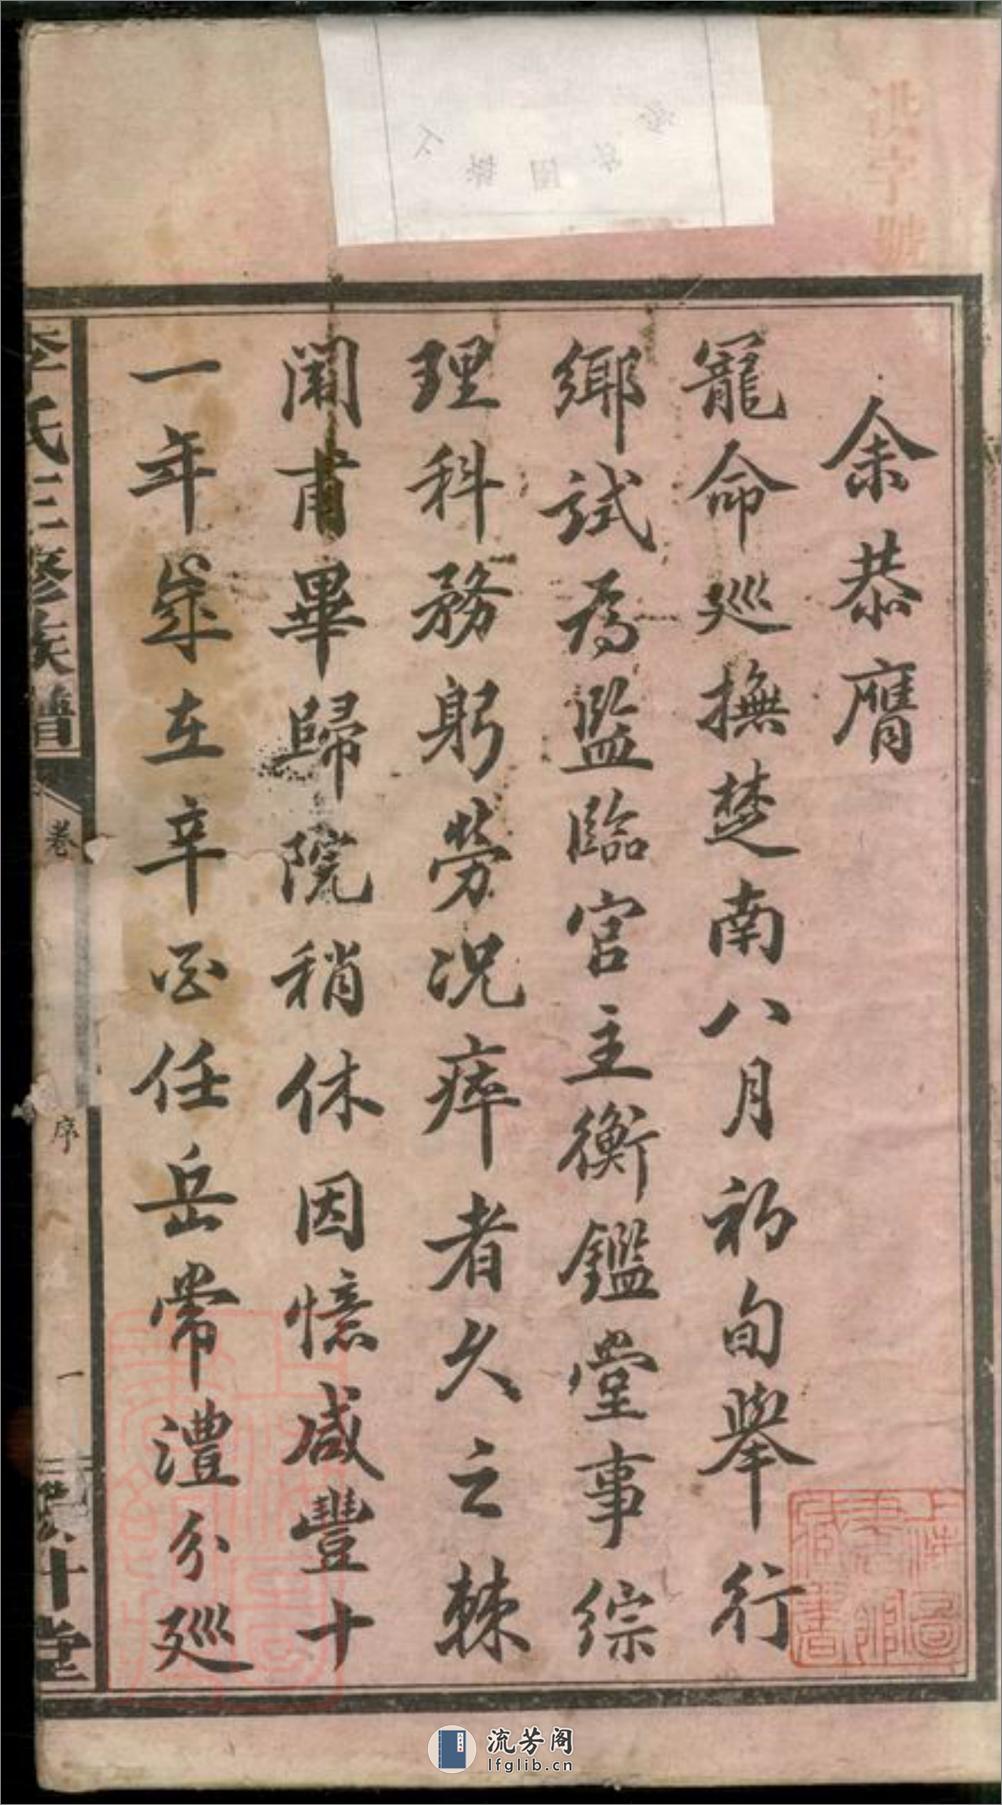 洪字號
余恭膺
寵命巡撫楚南八月初旬舉行
鄉試爲監臨官主衡鑑堂事綜
理科務躬勞況瘁者久之棘
闈甫畢歸院稍休因憶咸豐十
一年歲在辛酉任岳常澧分巡
李氏三修族譜
卷
序
一
堂
上海圖書館藏書
流芳阁
lfglib.cn